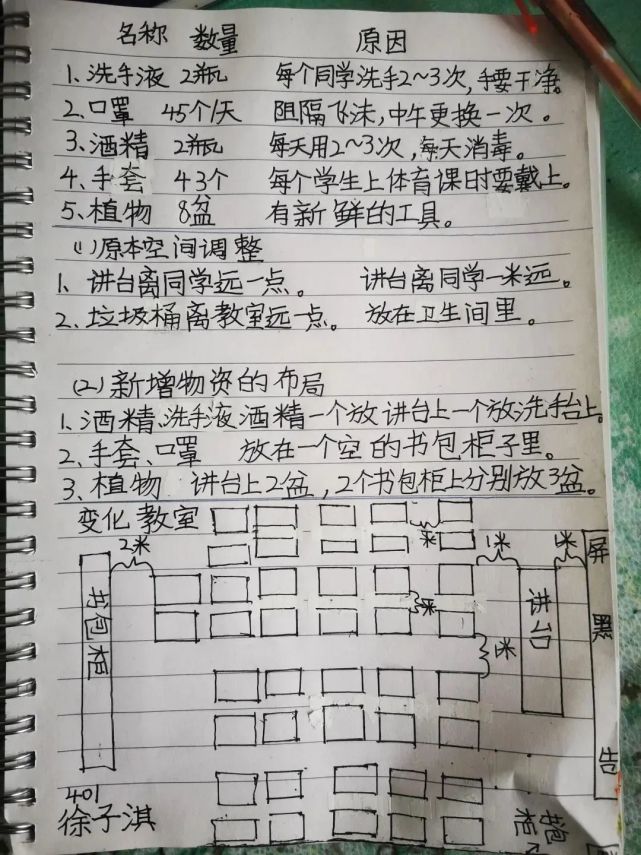 名称 数量 原因
1、洗手液 2瓶 每个同学洗手2~3次,手要干净。
2、口罩 45个/天 阻隔飞沫,中午更换一次。
3、酒精 2瓶 每天用2~3次,每天消毒。
4、手套 43个 每个学生上体育课时要戴上。
5、植物 8盆 有新鲜的工具。
(1)原本空间调整
1、讲台离同学远一点。 讲台离同学一米远。
2、垃圾桶离教室远一点。 放在卫生间里。
(2)新增物资的布局
1、酒精、洗手液 酒精一个放讲台上一个放洗手台上。
2、手套、口罩 放在一个空的书包柜子里。
3、植物 讲台上2盆,2个书包柜上分别放3盆。
变化教室
2米
米
1米
1米
屏
书包柜
米
讲台
黑
1米
告
401
徐子淇
柜